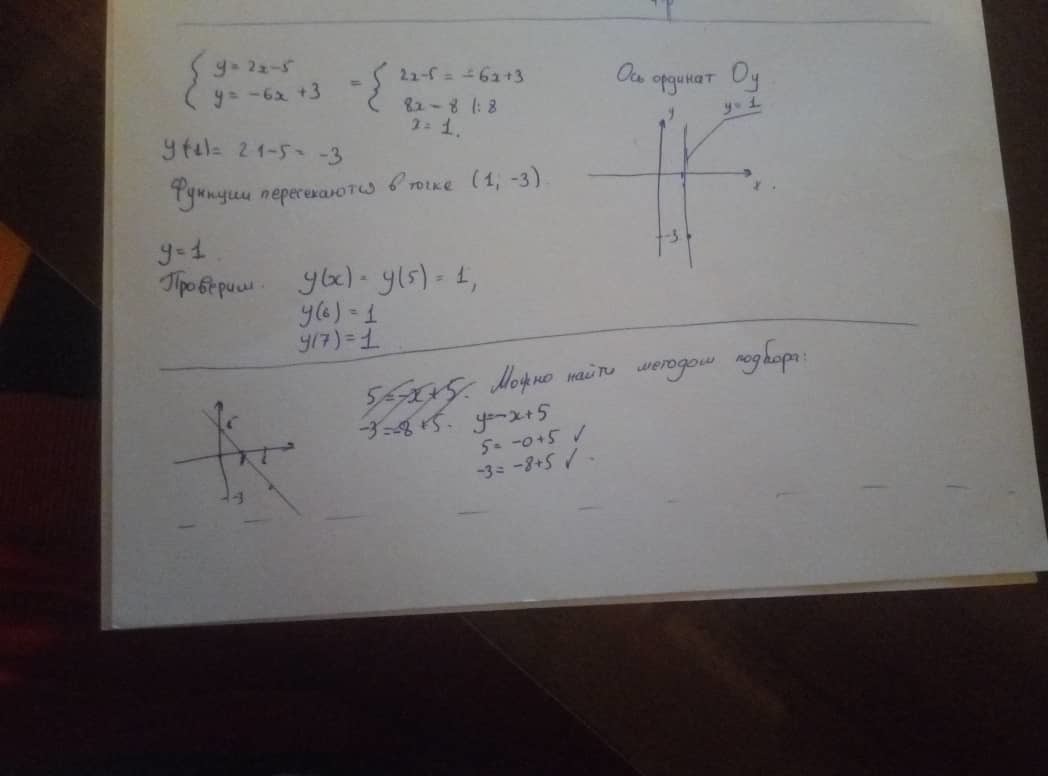 { y = 2x-5
y = -6x + 3 = { 2x-5 = -6x+3
8x - 8 |: 8
x = 1.
y(1) = 2·1-5 = -3
Функции пересекаются в точке (1; -3).
Ось ординат Oy
y = 1
y
x
-3
y = 1.
Проверим. y(x) = y(5) = 1,
y(6) = 1
y(7) = 1
5 = -x + 5. Можно найти методом подбора:
-3 = -8 + 5. y=-x+5
5 = -0+5 ✓
-3 = -8+5 ✓.
-3